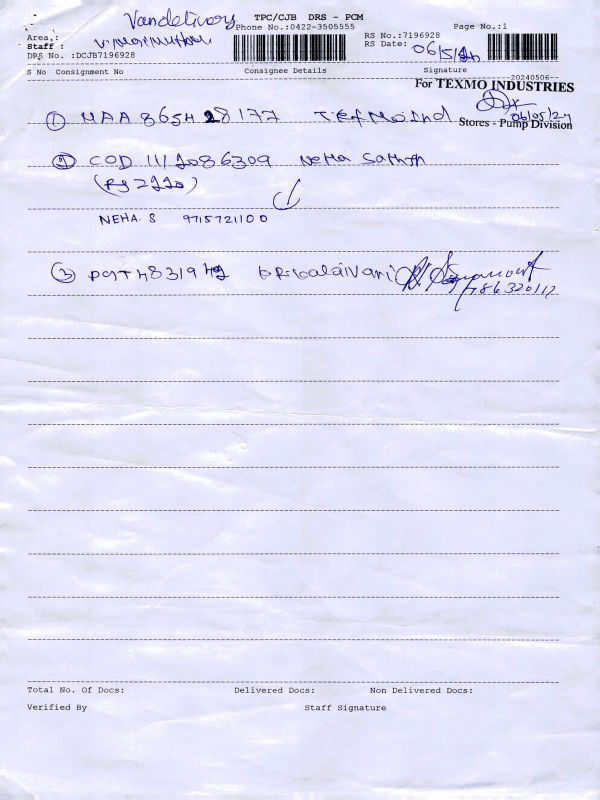 Vandelivery
TPC/CJB DRS - PCM
Phone No.:0422-3505555
Page No.:1
Area.:
Staff :
DRS No. :DCJB7196928
RS No.:7196928
RS Date: 06/5/24
S No Consignment No Consignee Details Signature
--20240506--
For TEXMO INDUSTRIES
06/05/24
Stores - Pump Division
① MAA 865428177
② COD 111 2086309 Neha Sathish
(Rs 2220)
NEHA. S 9715721100
③
Total No. Of Docs: Delivered Docs: Non Delivered Docs:
Verified By Staff Signature